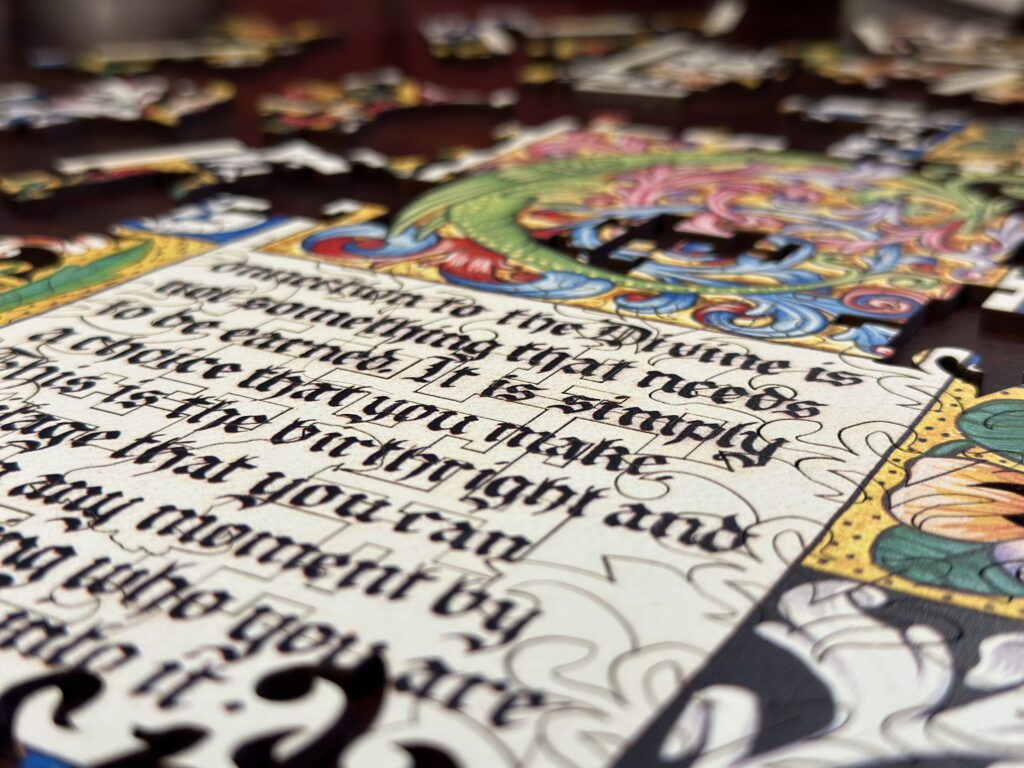 Connection to the Divine is
not something that needs
to be earned. It is simply
a choice that you make.
This is the birthright and
that you can
any moment by
who you are
it.